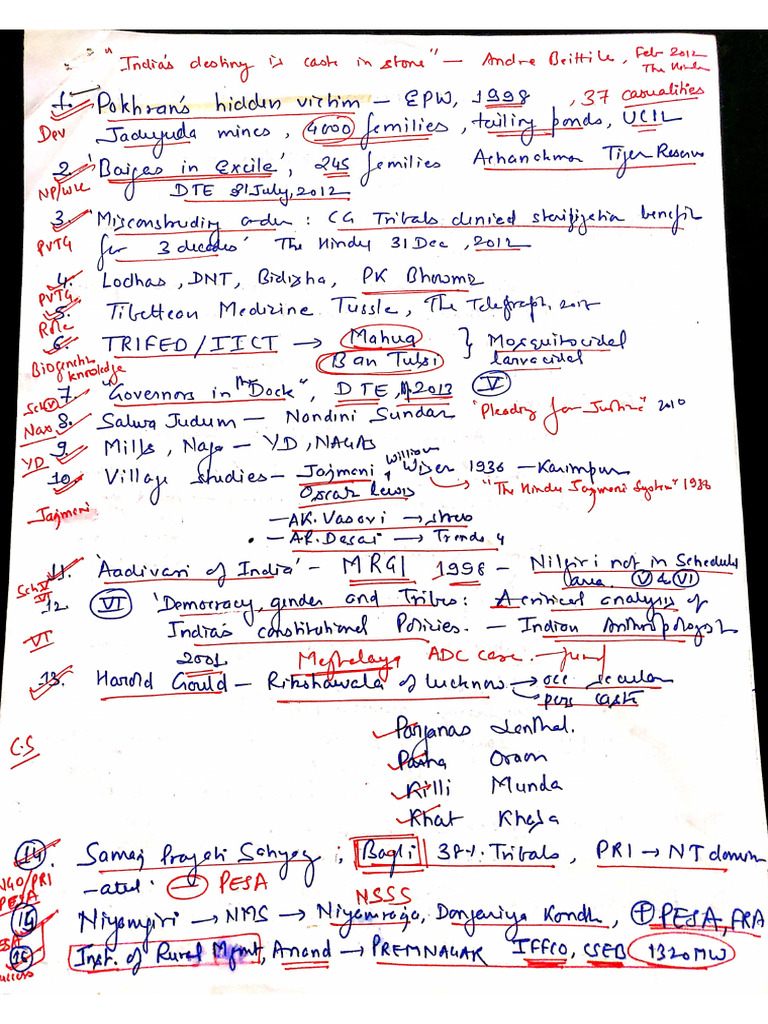 "India's destiny is caste in stone" – Andre Beittile, Feb 2012
The Hindu
1. Pokhran's hidden victim – EPW, 1998, 37 casualities
Dev Jaduguda mines, 4000 femilies, tailing ponds, UCIL
2. 'Baigas in Excile', 245 femilies Achanakmar Tiger Reserve
NP/WLC DTE 31 July, 2012
3. 'Misconstruding order : CG Tribals denied sterilization benefit
PVTG for 3 decades' The Hindu 31 Dec, 2012
4. Lodhas, DNT, Bidisha, PK Bhowmz
PVTG
5. Tibettean Medicine Tussle, The Telegraph, 2017
Role
6. TRIFED/IICT → Mahua } Mosquitocidal
Ban Tulsi larvacidal
Biogenetic knowledge
7. "Governors in the Dock", DTE, 2013 V
Sch V
8. Salwa Judum – Nandini Sundar "Pleading for Justice" 2010
Nax
9. Mills, Naga – YD, NAGAS
YD
10. Village studies – Jajmani, William Wiser 1936 – Karimpur
Oscar Lewis → "The Hindu Jajmani System" 1936
Jajmani
– AK. Vasavi → stress
– AR. Desai → Trends 4
11. 'Aadivasi of India' – MRGI 1998 – Nilgiri not in Schedule
Sch V VI area. V & VI
12 VI 'Democracy, gender and Tribes: A critical analysis of
VI India's constitutional Policies. – Indian Anthropologist
2001 Meghalaya ADC case.
13. Harold Gould – Rikshawala of Lucknow → occ secular
→ pers caste
C.S
Parjanas Santhal.
Pauna Oraon
Rilli Munda
Khat Khasa
14. Samaj Pragati Sahyog ; Bagli 38% Tribals, PRI → NT domin
NGO/PRI PESA -ated. – PESA
NSSS
15 Niyamgiri → NMS → Niyamraja, Dongariya Kondh, + PESA, FRA
16 Inst. of Rural Mgmt, Anand → PREMNAGAR IFFCO, CSEB 1320MW
success